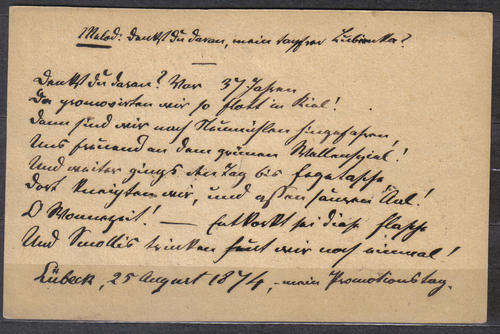 Melod: Denkst du daran, mein tapfrer Lagienka?
Denkst du daran? Vor 37 Jahren
Da promovirten wir so flott in Kiel!
Dann sind wir nach Neumühlen hingefahren,
Uns freuend an dem grünen Wellenspiel!
Und weiter gings den Tag bis
Dort kneipten wir, und assen sauren Aal!
O Wonnezeit! — Entkorkt sei diese Flasche
Und Smollis trinken wir noch einmal!
Lübeck, 25 August 1874, mein Promotionstag.